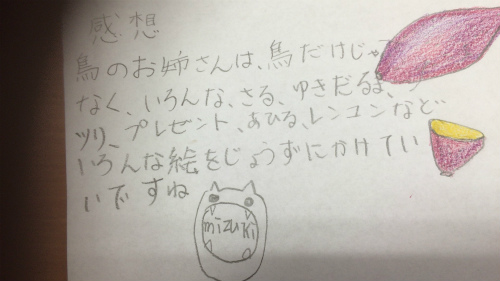 感想
鳥のお姉さんは、鳥だけじゃ
なく、いろんな、さる、ゆきだるま、
ツリ、プレゼント、あひる、レンコンなど
いろんな絵をじょうずにかけてい
いですね
mizuki